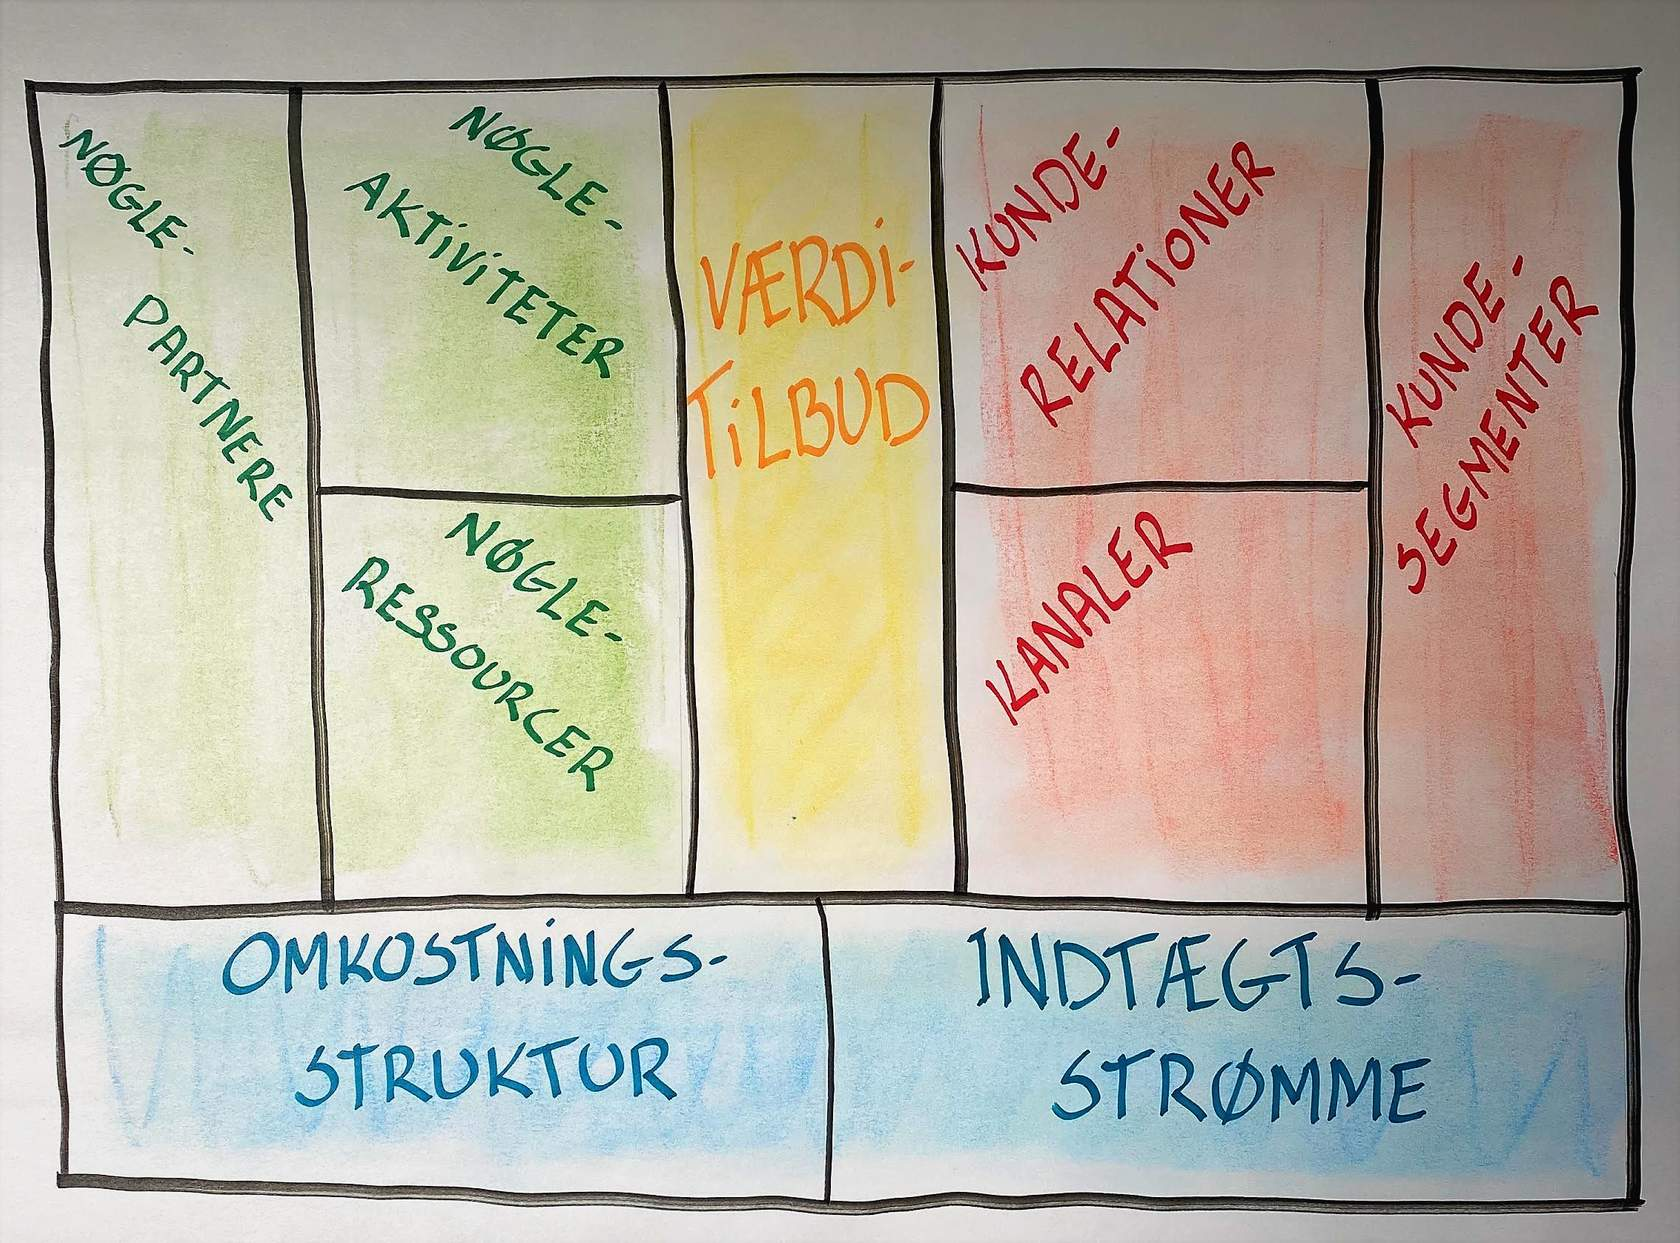 NØGLE-
PARTNERE
NØGLE-
AKTiViTETER
NØGLE-
RESSOURCER
VÆRDi-
TiLBUD
KUNDE-
RELATiONER
KANALER
KUNDE-
SEGMENTER
OMKOSTNiNGS-
STRUKTUR
INDTÆGTS-
STRØMME